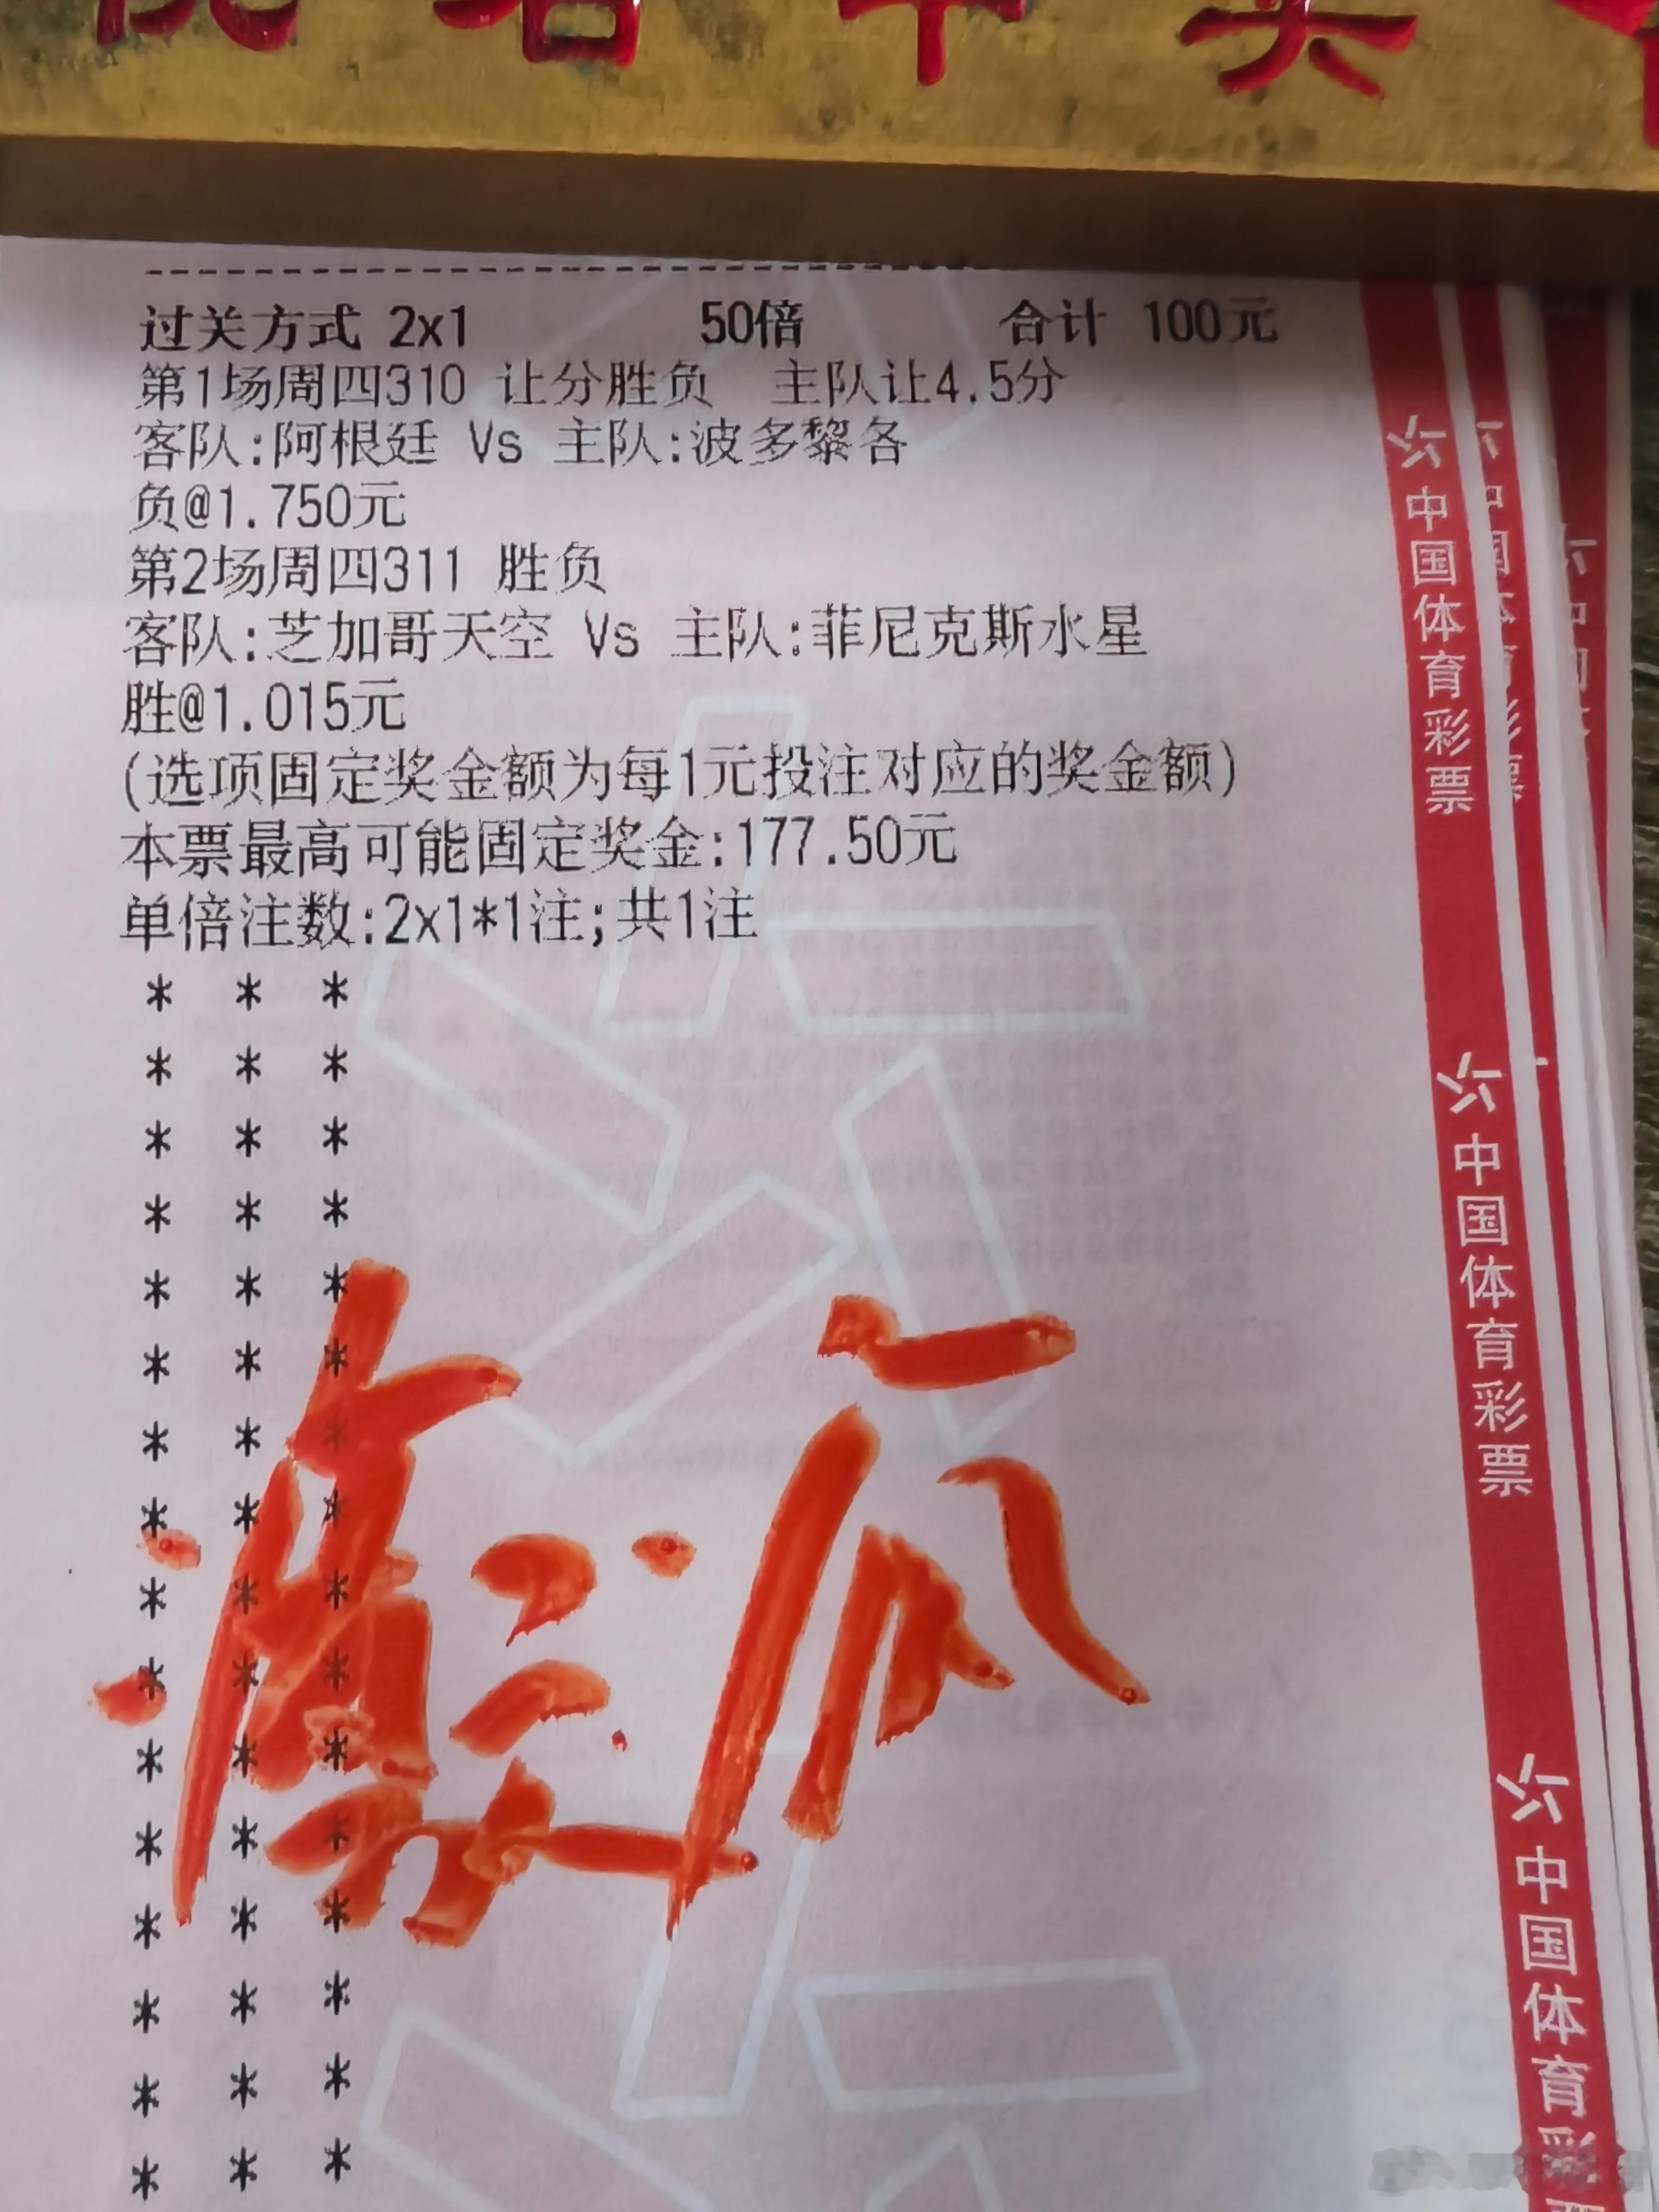 过关方式 2x1 50倍 合计 100元
第1场周四310 让分胜负 主队让4.5分
客队:阿根廷 Vs 主队:波多黎各
负@1.750元
第2场周四311 胜负
客队:芝加哥天空 Vs 主队:菲尼克斯水星
胜@1.015元
(选项固定奖金额为每1元投注对应的奖金额)
本票最高可能固定奖金:177.50元
单倍注数:2x1*1注;共1注
* * *
* * *
* * *
* * *
* * *
* * *
* * *
* * *
* * *
* * *
* * *
* * *
* * *
* * *
* * *
* * *
中国体育彩票
中国体育彩票
中国体育彩票